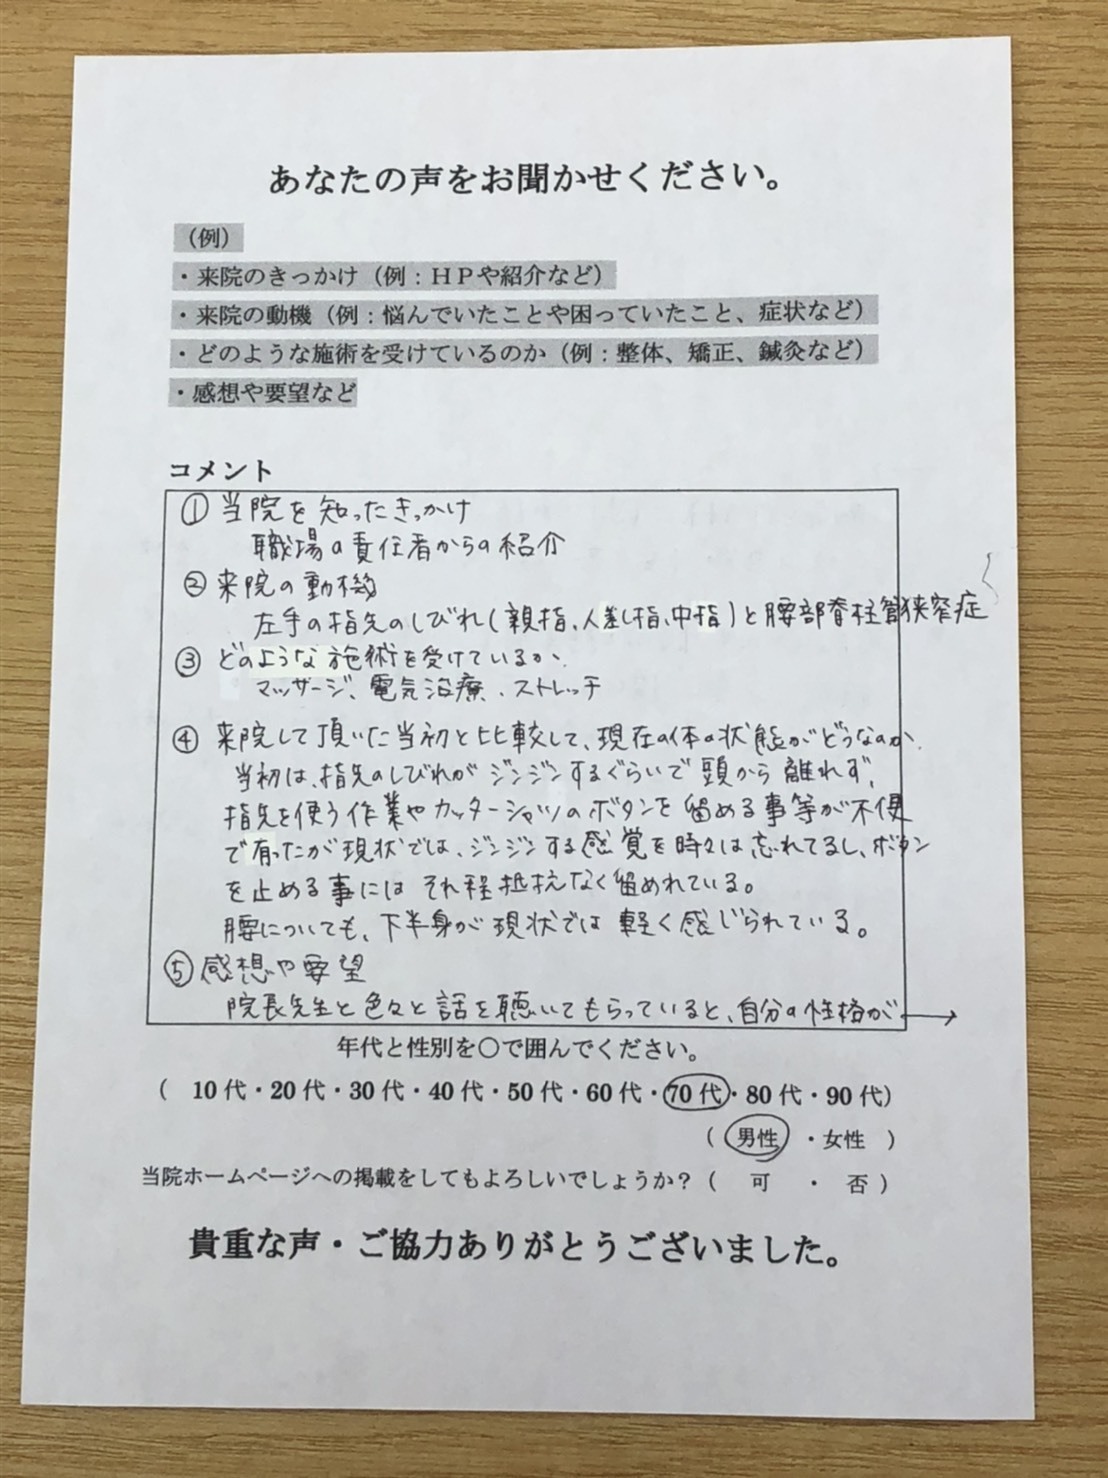 あなたの声をお聞かせください。
（例）
・来院のきっかけ（例：ＨＰや紹介など）
・来院の動機（例：悩んでいたことや困っていたこと、症状など）
・どのような施術を受けているのか（例：整体、矯正、鍼灸など）
・感想や要望など
コメント
① 当院を知ったきっかけ
職場の責任者からの紹介
② 来院の動機
左手の指先のしびれ（親指、人差し指、中指）と腰部脊柱管狭窄症
③ どのような施術を受けているか、
マッサージ、電気治療、ストレッチ
④ 来院して頂いた当初と比較して、現在の体の状態がどうなのか、
当初は、指先のしびれがジンジンするぐらいで頭から離れず、
指先を使う作業やカッターシャツのボタンを留める事等が不便
で有ったが現状では、ジンジンする感覚を時々は忘れてるし、ボタン
を止める事にはそれ程抵抗なく留めれている。
腰についても、下半身が現状では軽く感じられている。
⑤ 感想や要望
院長先生と色々と話を聴いてもらっていると、自分の性格が→
年代と性別を○で囲んでください。
（ 10代・20代・30代・40代・50代・60代・70代・80代・90代）
（ 男性 ・女性 ）
当院ホームページへの掲載をしてもよろしいでしょうか？（ 可 ・ 否 ）
貴重な声・ご協力ありがとうございました。